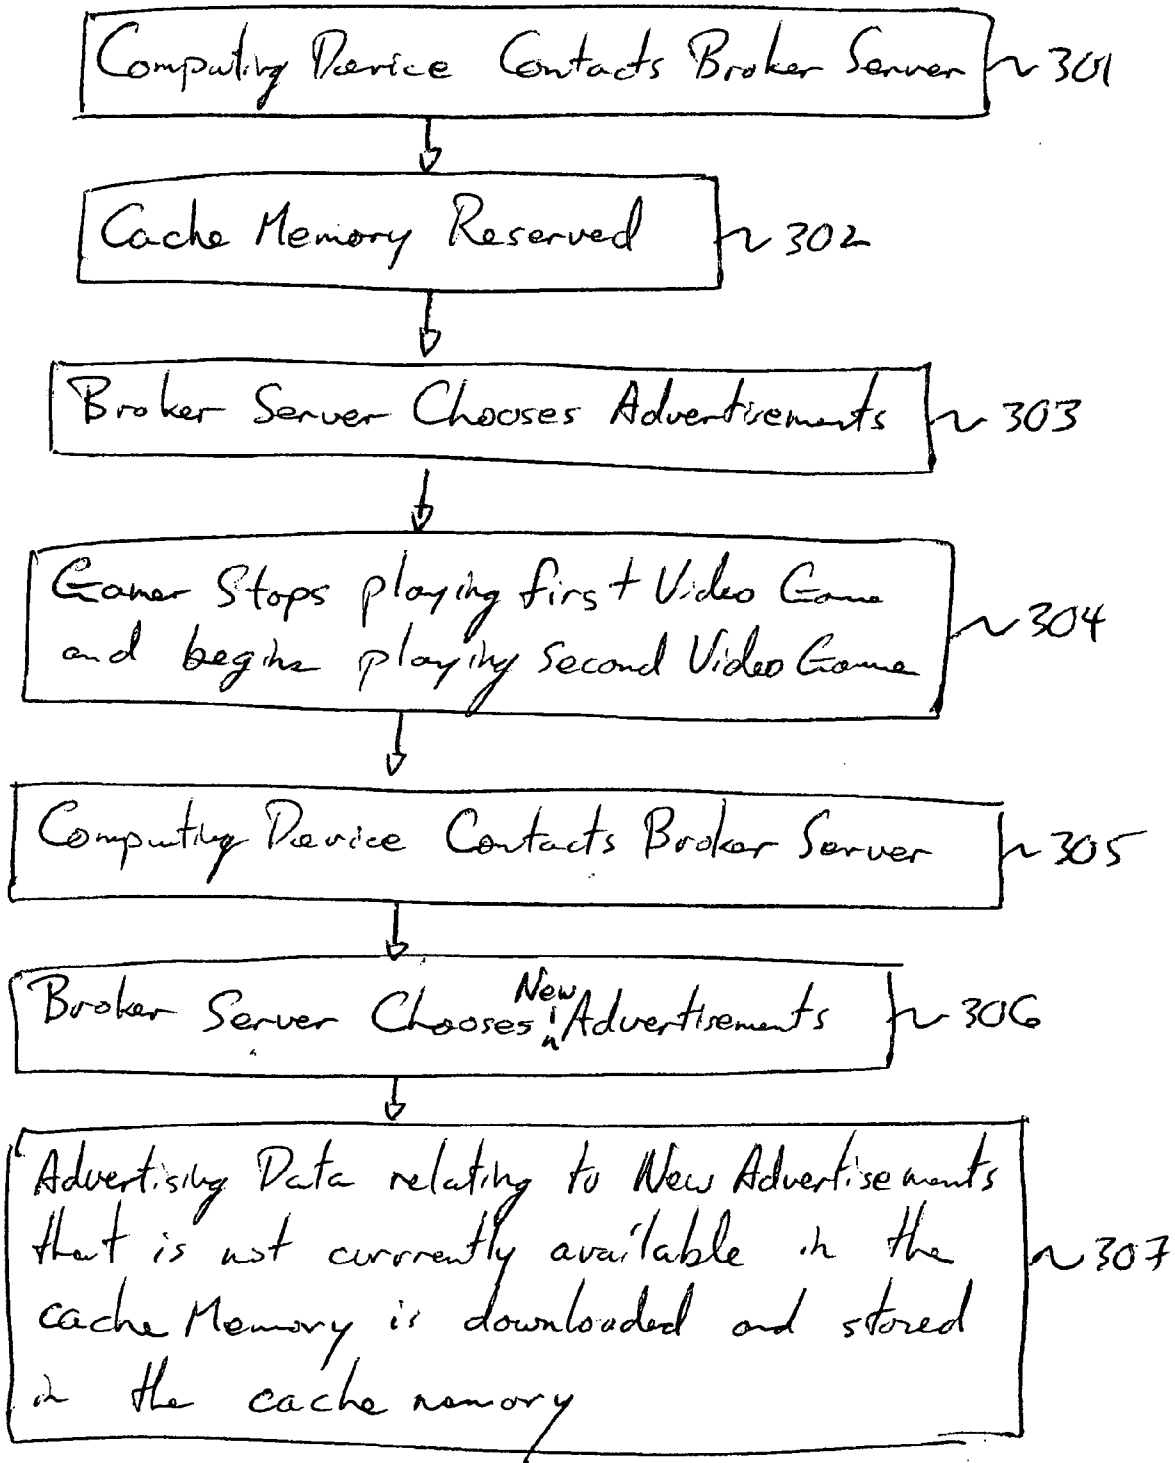 Computing Device Contacts Broker Server 301
Cache Memory Reserved 302
Broker Server Chooses Advertisements 303
Gamer Stops playing first Video Game
and begins playing second Video Game 304
Computing Device Contacts Broker Server 305
Broker Server Chooses New Advertisements 306
Advertising Data relating to New Advertisements
that is not currently available in the 307
cache Memory is downloaded and stored
in the cache memory